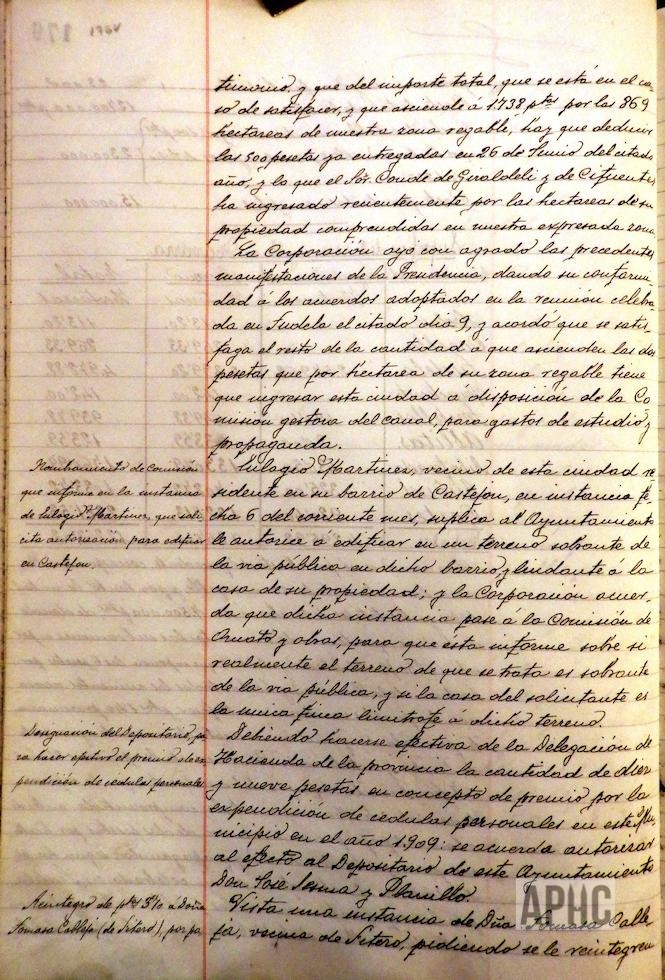 timonio, y que del importe total, que se está en el ca-
so de satisfacer, y que asciende á 1738 ptas por las 869
hectareas de nuestra zona regable, hay que deducir
las 500 pesetas ya entregadas en 26 de Junio del citado
año, y lo que el Sor. Conde de Giraldeli y de Cifuentes
ha ingresado recientemente por las hectareas de su
propiedad comprendidas en nuestra expresada zona
La Corporación oyó con agrado las precedentes
manifestaciones de la Presidencia, dando su conformi-
dad á los acuerdos adoptados en la reunión celebra-
da en Tudela el citado dia 9, y acordó que se satis-
faga el resto de la cantidad á que ascienden las dos
pesetas que por hectarea de su zona regable tiene
que ingresar esta ciudad á disposición de la Co-
misión gestora del canal, para gastos de estudio y
propaganda.
Nombramiento de Comisión
que informe en la instancia
de Eulogio Martinez, que soli-
cita autorización para edificar
en Castejon.
Eulogio Martinez, vecino de esta ciudad re-
sidente en su barrio de Castejon, en instancia fe-
cha 6 del corriente mes, suplica al Ayuntamiento
le autorice á edificar en un terreno sobrante de
la via pública en dicho barrio y lindante á la
casa de su propiedad; y la Corporación acuer-
da que dicha instancia pase á la Comisión de
Ornato y obras, para que ésta informe sobre si
realmente el terreno de que se trata es sobrante
de la via pública, y si la casa del solicitante es
la unica finca limitrofe á dicho terreno.
Designación del Depositario, pa-
ra hacer efectivo el premio de ex-
pendición de cedulas personales
Debiendo hacerse efectiva de la Delegación de
Hacienda de la provincia la cantidad de diez
y nueve pesetas en concepto de premio por la
expendición de cedulas personales en este Mu-
nicipio en el año 1.909: se acuerda autorizar
al efecto al Depositario de este Ayuntamiento
Don José Sesma y Planillo.
Reintegro de ptas á Doña
Tomasa Calleja (de Fitero), por pa-
Vista una instancia de Dña Tomasa Calle-
ja, vecina de Fitero, pidiendo se le reintegren
APHC